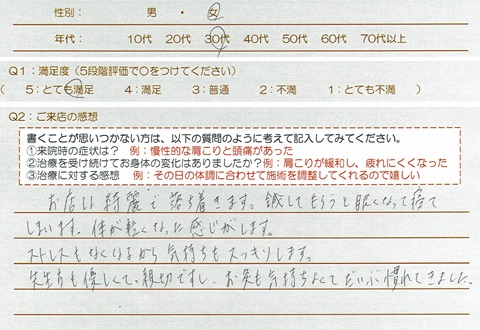 性別： 男 ・ 女
年代： 10代 20代 30代 40代 50代 60代 70代以上
Q1：満足度（5段階評価で〇をつけてください）
( 5：とても満足 4：満足 3：普通 2：不満 1：とても不満 )
Q2：ご来店の感想
書くことが思いつかない方は、以下の質問のように考えて記入してみてください。
①来院時の症状は？ 例：慢性的な肩こりと頭痛があった
②治療を受け続けてお身体の変化はありましたか？例：肩こりが緩和し、疲れにくくなった
③治療に対する感想 例：その日の体調に合わせて施術を調整してくれるので嬉しい
お店は綺麗で落ち着きます。鍼してもらうと眠くなって寝て
しまいます。体が軽くなった感じがします。
ストレスもなくなるから気持ちもスッキリします。
先生方も優しくて、親切ですし、お灸も気持ちよくてだいぶ慣れてきました。